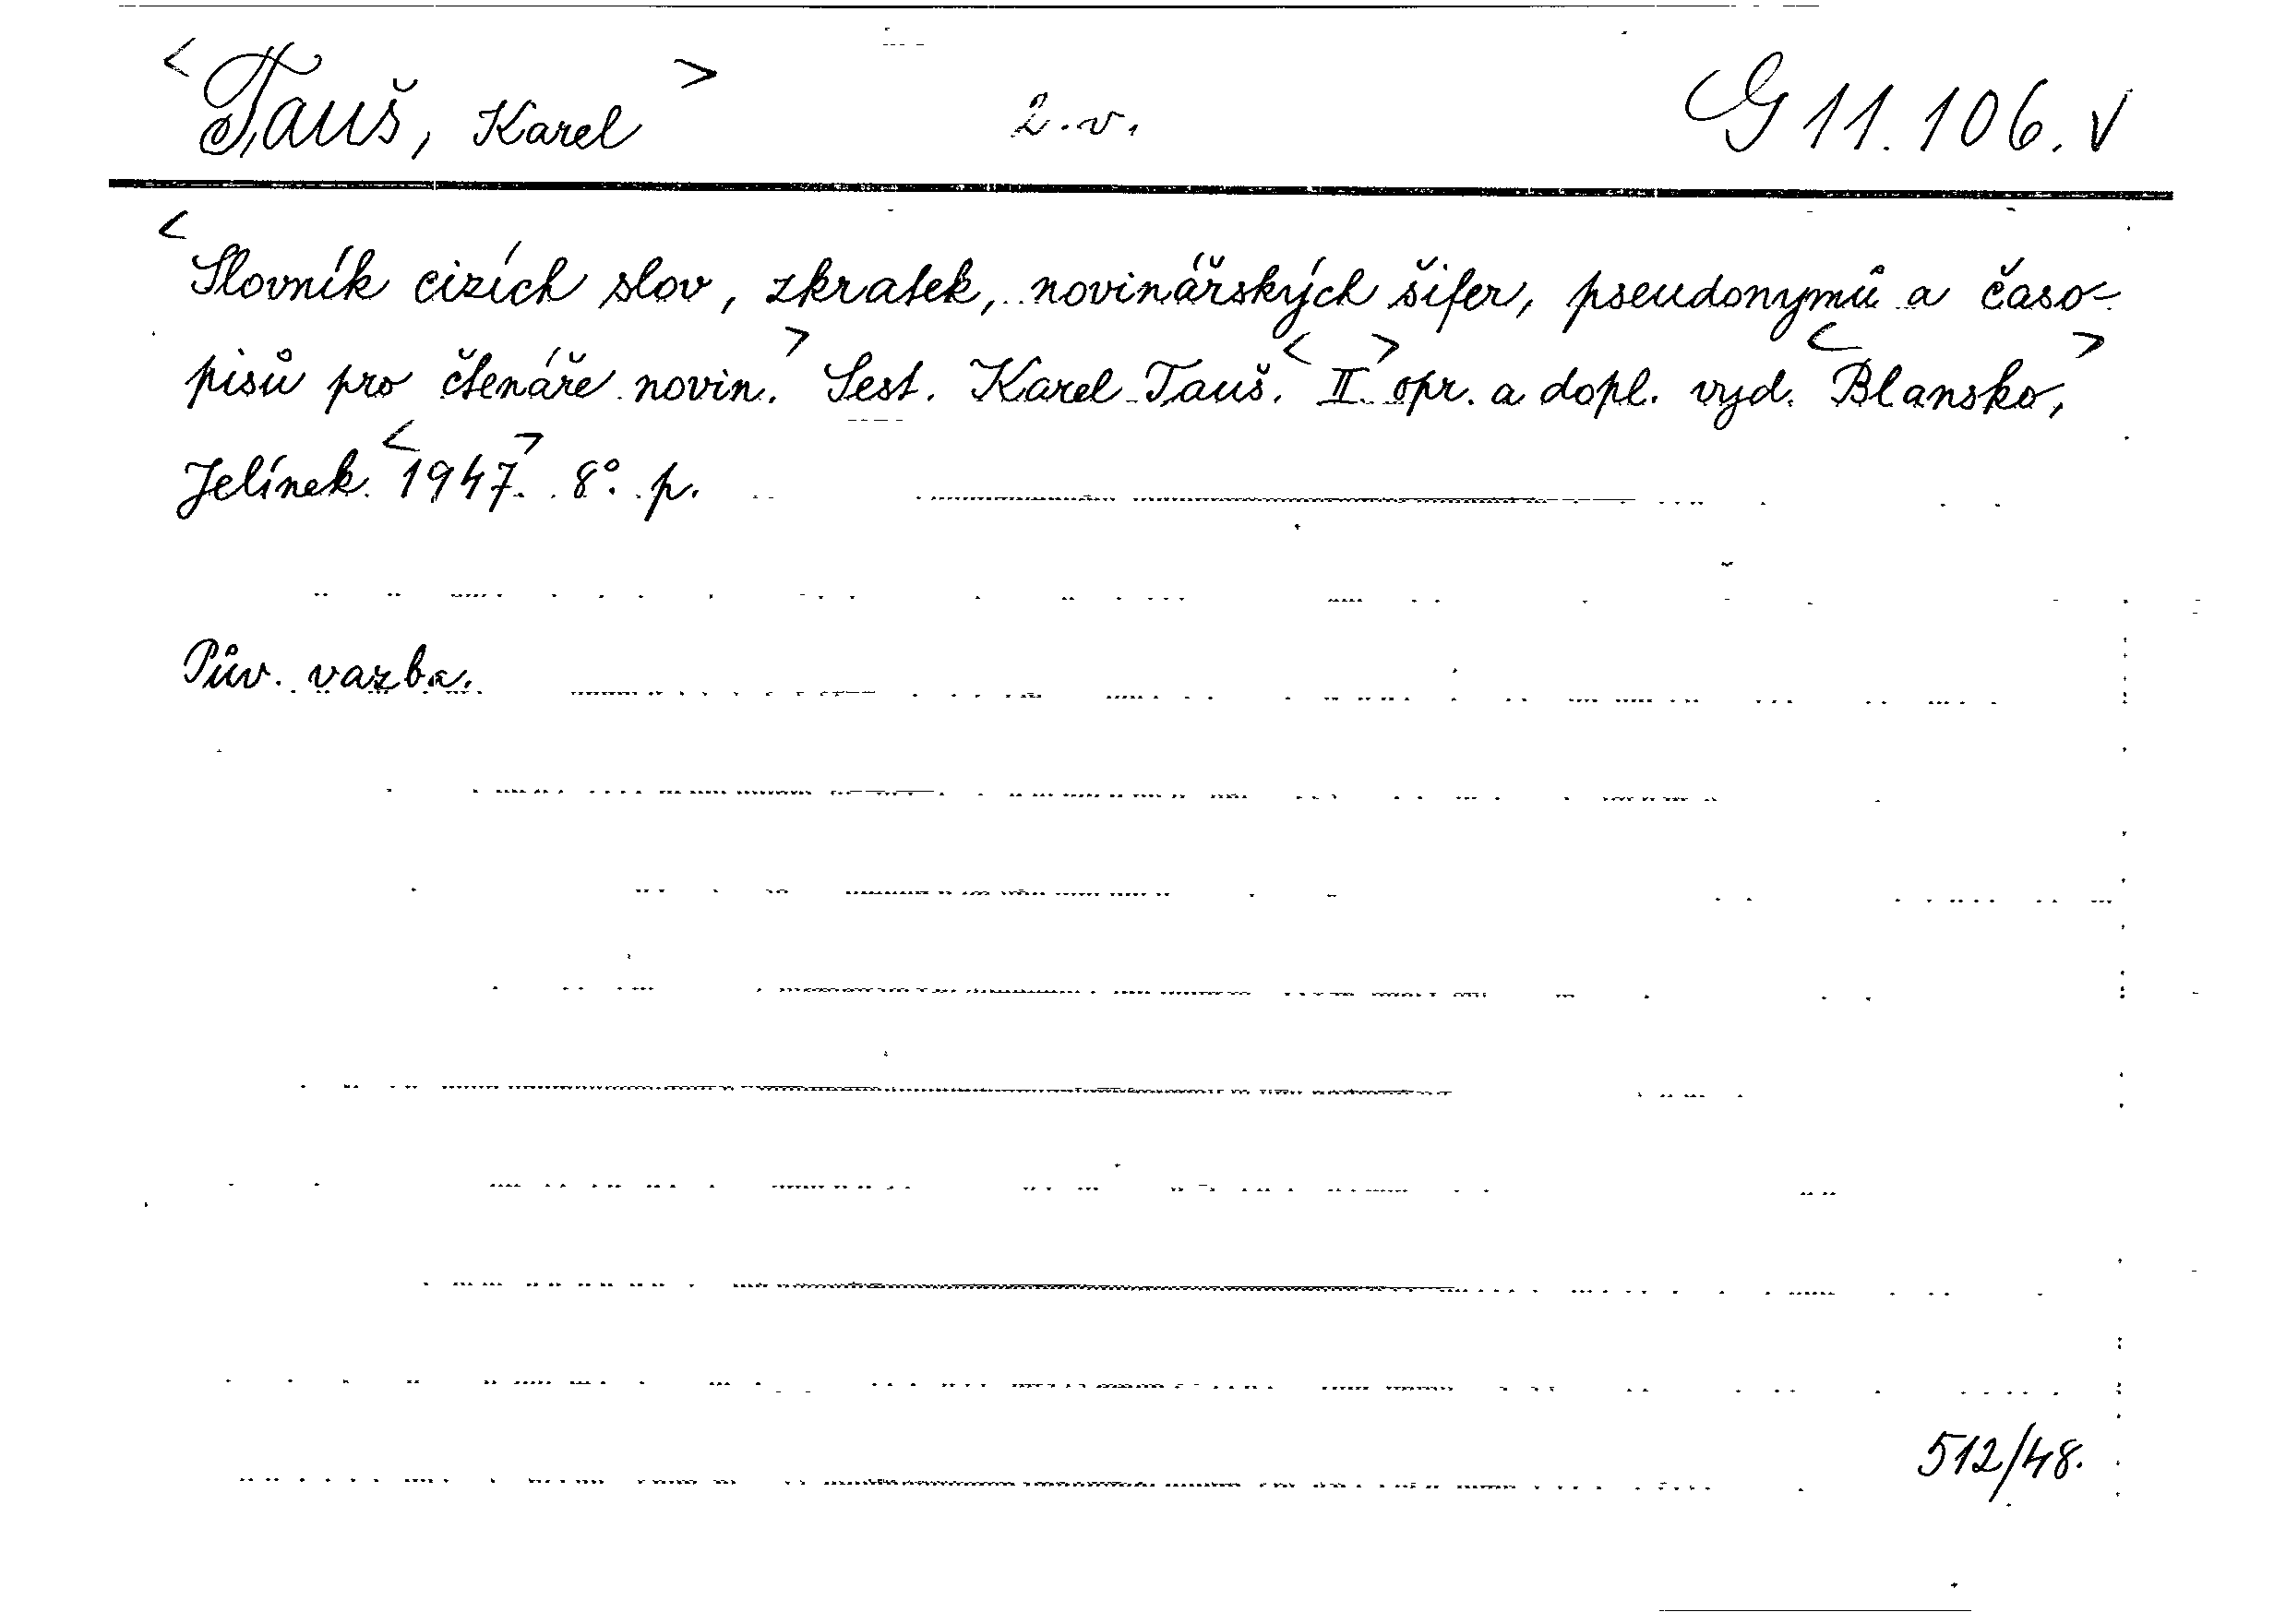 <Tauš, Karel> 2.v. G 11.106.V
<Slovník cizích slov, zkratek, novinářských šifer, pseudonymů a časo-
pisů pro čtenáře novin.> Sest. Karel Tauš. <II.> opr. a dopl. vyd. <Blansko,>
Jelínek. <1947>. 8°. p.
Pův. vazba.
512/48.